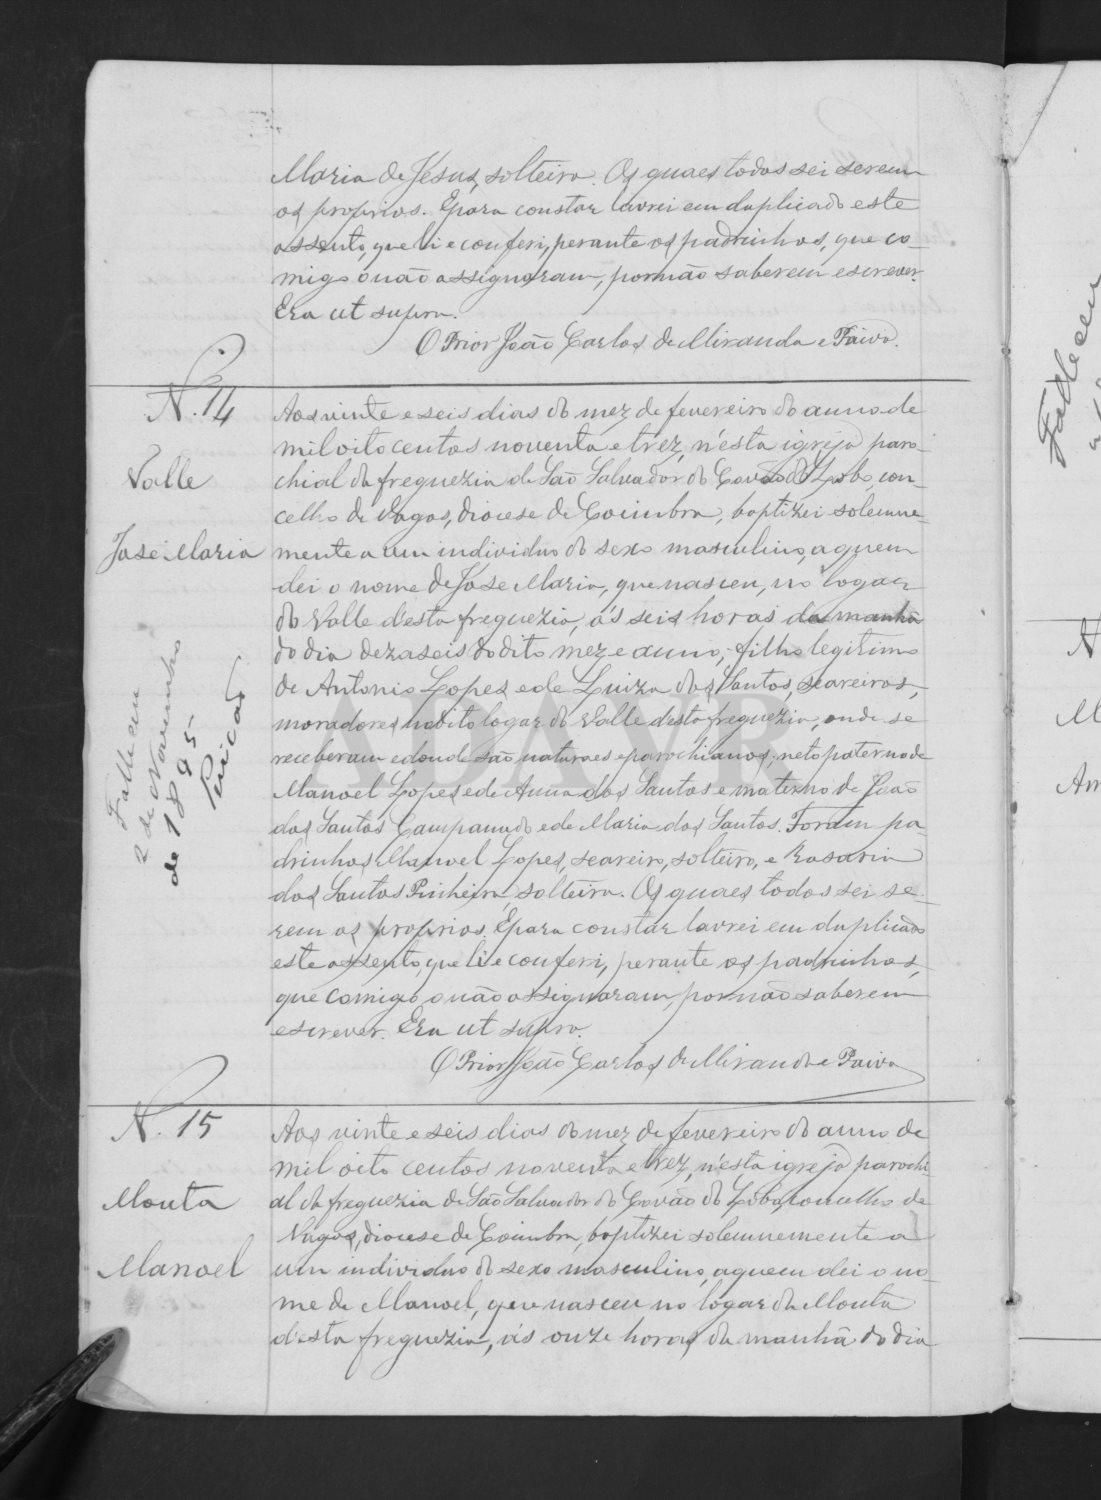 Maria de Jesus, solteira. Os quaes todos sei serem
os proprios. E para constar lavrei em duplicado este
assento, que li e conferi, perante os padrinhos, que co-
migo o não assignaram, por não saberem escrever.
Era ut supra.
O Prior João Carlos de Miranda e Paiva.
N. 14
Valle
José Maria
Falleceu
2 de Novembro
de 1895
Aos vinte e seis dias do mez de fevereiro do anno de
mil oito centos noventa e trez, n'esta igreja paro-
chial da freguezia de São Salvador do Covão do Lobo, con-
celho de Vagos, diocese de Coimbra, baptizei solemne-
mente a um individuo do sexo masculino, a quem
dei o nome de José Maria, que nasceu, no logar
do Valle desta freguezia, ás seis horas da manhã
do dia dezaseis do dito mez e anno, filho legitimo
de Antonio Lopes e de Luiza dos Santos, seareiros,
moradores no dito logar do Valle desta freguezia, onde se
receberam e donde são naturaes e parochianos; neto paterno de
Manoel Lopes e de Anna dos Santos e materno de João
dos Santos Campanudo e de Maria dos Santos. Foram pa-
drinhos Manoel Lopes, seareiro, solteiro, e Rosaria
dos Santos Pinheira, solteira. Os quaes todos sei se-
rem os proprios. E para constar lavrei em duplicado
este assento, que li e conferi, perante os padrinhos,
que comigo o não assignaram, por não saberem
escrever. Era ut supra.
O Prior João Carlos de Miranda e Paiva
N. 15
Mouta
Manoel
Aos vinte e seis dias do mez de fevereiro do anno de
mil oito centos noventa e trez, n'esta igreja parochi-
al da freguezia de São Salvador do Covão do Lobo, concelho de
Vagos, diocese de Coimbra, baptizei solemnemente a
um individuo do sexo masculino, a quem dei o no-
me de Manoel, que nasceu no logar da Mouta
desta freguezia, ás onze horas da manhã do dia
ADAVR
Falleceu